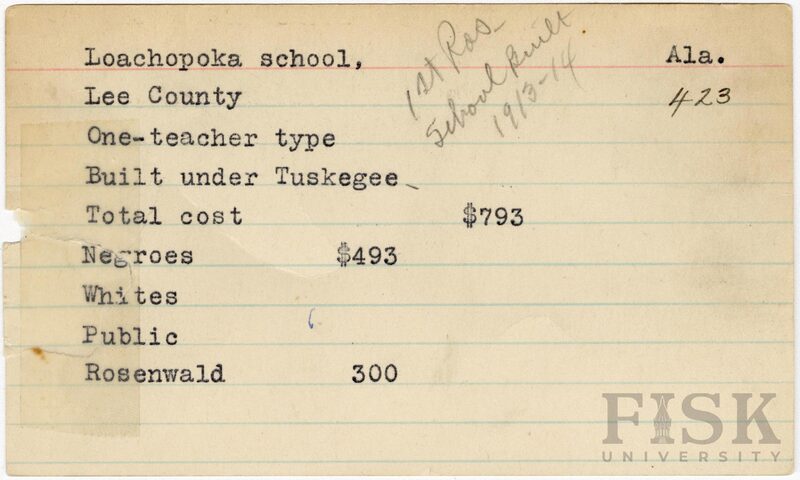 Loachopoka school,
Ala.
1st Ros-
School built
1913-14
Lee County
423
One-teacher type
Built under Tuskegee
Total cost $793
Negroes $493
Whites
Public
Rosenwald 300
FISK
UNIVERSITY